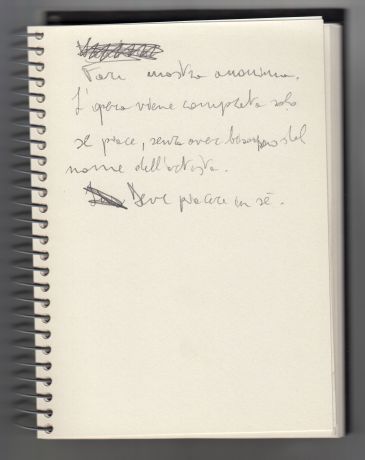 Fare mostra anonima.
L'opera viene comprata solo
se piace, senza aver bisogno del
nome dell'artista.
Deve piacere in sé.